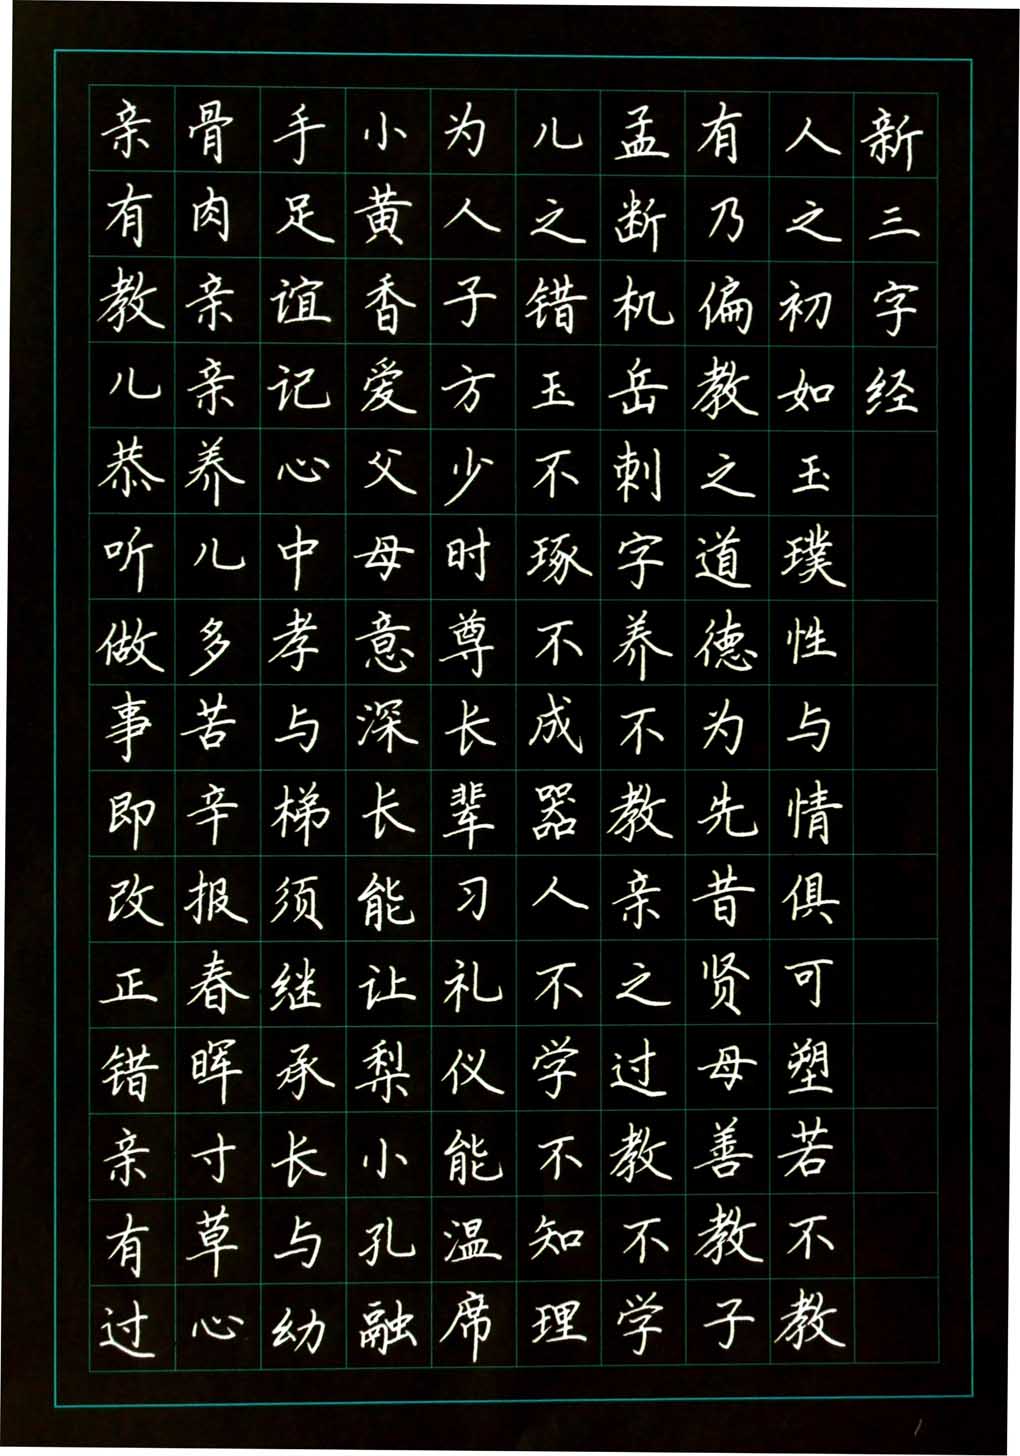 新三字经
人之初如玉璞性与情俱可塑若不教
有乃偏教之道德为先昔贤母善教子
孟断机岳刺字养不教亲之过教不学
儿之错玉不琢不成器人不学不知理
为人子方少时尊长辈习礼仪能温席
小黄香爱父母意深长能让梨小孔融
手足谊记心中孝与梯须继承长与幼
骨肉亲亲养儿多苦辛报春晖寸草心
亲有教儿恭听做事即改正错亲有过